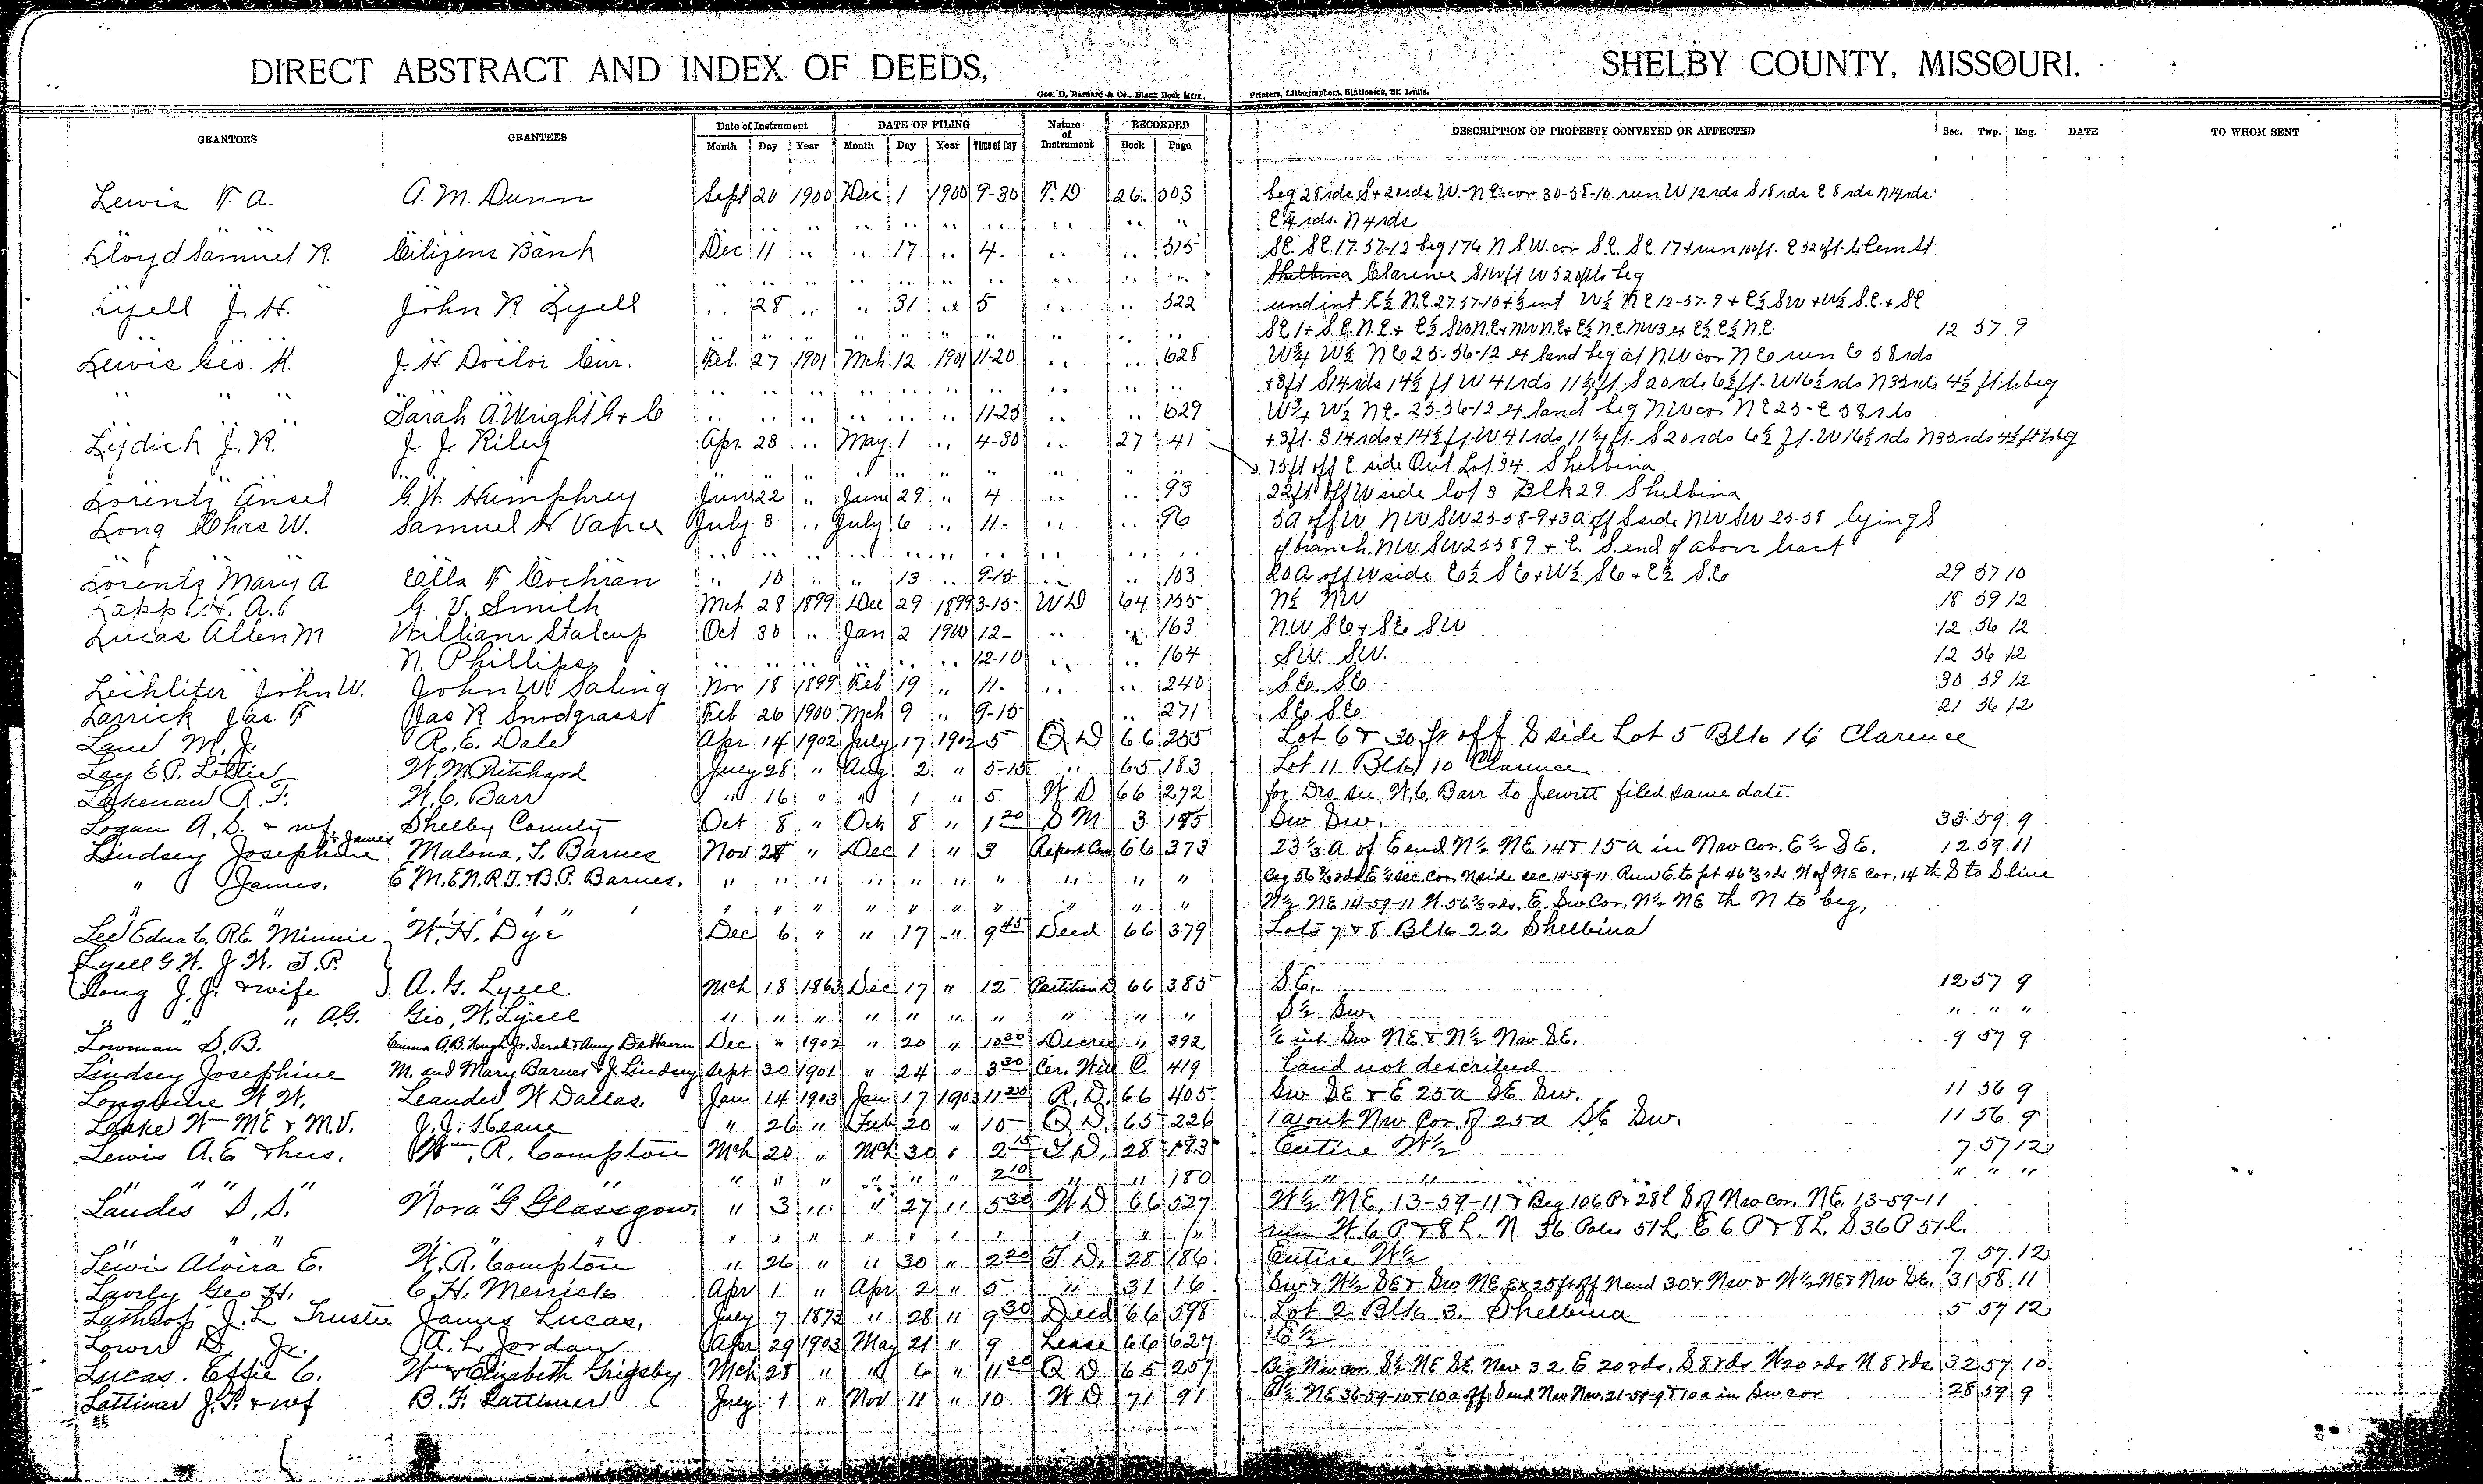 DIRECT ABSTRACT AND INDEX OF DEEDS, SHELBY COUNTY, MISSOURI.
Geo. D. Barnard & Co., Blank Book Mfrs., Printers, Lithographers, Stationers, St. Louis.
GRANTORS GRANTEES Date of Instrument DATE OF FILING Nature of Instrument RECORDED DESCRIPTION OF PROPERTY CONVEYED OR AFFECTED Sec. Twp. Rng. DATE TO WHOM SENT
Month Day Year Month Day Year Time of Day Book Page
Lewis F. A. A. M. Dunn Sept 20 1900 Dec 1 1900 9-30 T. D 26 303 beg 28rds S + 20rds W. N E cor 30-58-10 run W 12rds S 18rds E 8rds N 14rds
E 4 rds. N 4rds
Lloyd Samuel R. Citizens Bank Dec 11 " " 17 " 4. " " 315 SE. SE. 17-57-12 beg 176 N S W. cor S.E. SE 17 + run 100ft. E 520ft to Cem St
Shelbina Clarence S 100ft W 520ft to beg
Lyell J. H. John R Lyell " 28 " " 31 " 5 " " 322 und int E½ N.E. 27.57-10 + ½ int W½ N E 12-57-9 + E½ SW + W½ S.E. + SE
SE 1 + S.E. N.E. + E½ SW N.E + NW N.E + E½ N.E. NW 3 ex E½ E½ N.E. 12 57 9
Lewis Geo. H. J. H Doctor Cur. Feb. 27 1901 Mch 12 1901 11-20 " " 628 W¾ W½ N E 25-56-12 ex land beg at NW cor N E run E 58rds
+ 3ft S 14rds 14½ ft W 41rds 11¼ ft. S 20rds 6½ ft. W 16½ rds N 35rds 4½ ft to beg
" " " Sarah A. Wright G + C " " " " " " 11-25 " " 629 W¾ W½ N E. 25-56-12 ex land beg NW cor N E 25-E 58rds
Lydick J. R. J. J. Riley Apr 28 " May 1 " 4-30 " 27 41 + 3ft. S 14rds + 14½ ft. W 41rds 11¼ ft. S 20rds 6½ ft. W 16½ rds N 35rds 4½ ft to beg
75ft off E side Out Lot 34 Shelbina
Lorentz Ansel G. W. Humphrey June 22 " June 29 " 4 " " 93 22ft off W side lot 3 Blk 29 Shelbina
Long Chas W. Samuel H Vance July 3 " July 6 " 11- " " 96 5a off W NW SW 25-58-9 + 3a off S side NW SW 25-58 lying S
of branch. NW. SW 25 58 9 + E. S. end of above tract
Lorentz Mary A Ella F Cochran " 10 " " 13 " 9-15 " " 103 20A off W side E½ S E + W½ SE + E½ S.E 29 57 10
Lapp H. A. G. V. Smith Mch 28 1899 Dec 29 1899 3-15- W D 64 155 N½ NW 18 59 12
Lucas Allen M William Stalcup Oct 30 " Jan 2 1900 12- " " 163 NW SE + SE SW 12 56 12
N. Phillips " " " " " " 12-10 " " 164 SW. SW. 12 56 12
Lechliter John W. John W Saling Nov 18 1899 Feb 19 " 11- " " 240 SE. SE 30 59 12
Larrick Jas. F Jas R Snodgrass Feb 26 1900 Mch 9 " 9-15 " 271 SE. SE 21 56 12
Lane M. J. R. E. Dale Apr 14 1902 July 17 1902 5 Q D 66 255 Lot 6 & 30 ft off S side Lot 5 Blk 16 Clarence
Lay E. P. Lottie W. M Pritchard July 28 " Aug 2 " 5-15 " 65 183 Lot 11 Blk 10 Clarence
Lakenan R. F. W. C. Barr " 16 " " 1 " 5 W D 66 272 for Des. see W. C. Barr to Jewitt filed same date
Logan A. D. & wf. Shelby County Oct 8 " Oct 8 " 1 20 S M 3 195 Sw Sw. 33 59 9
Lindsey Josephine & James Malona, T. Barnes Nov 25 " Dec 1 " 3 Report Com 66 373 23⅓ a of E end N½ NE 14 & 15 a in Nw Cor. E½ SE. 12 59 11
" James. E M. E N. R T. & B. P. Barnes. " " " " " " " " " " Beg 56⅔ rds E ½ sec Cor. N side sec 14-59-11 Run E. to pt 46⅔ rds W of NE Cor. 14 th S to S line
" " " " " " " " " " " " " " N½ NE 14-59-11 W 56⅔ rds. E. Sw Cor. N½ NE th N to beg.
Lee Edna C. R E. Minnie W. H. Dye Dec 6 " " 17 " 9 45 Deed 66 379 Lots 7 & 8 Blk 22 Shelbina
Lyell G W. J. W. T. P.
Long J. J. & wife A. G. Lyell. Mch 18 1863 Dec 17 " 12 Partition D 66 385 S E. 12 57 9
" " " A.G. Geo. W. Lyell " " " " " " " " " " S½ Sw. " " "
Lowman S. B. Emma A. B. Hugh Jr. Sarah & Amy DeHaven Dec " 1902 " 20 " 10 30 Decree " 392 int Sw NE & N½ Nw S.E. 9 57 9
Lindsey Josephine M. and Mary Barnes & J. Lindsey Sept 30 1901 " 24 " 3 30 Cer. Will C 419 Land not described
W. W. Leander W Dallas. Jan 14 1903 Jan 17 1903 11 20 R. D. 66 405 Sw SE & E 25a SE Sw. 11 56 9
Leake Wm ME & M.V. J. J. Keane " 26 " Feb 20 " 10- Q D. 65 226 1a out Nw Cor. of 25a SE Sw. 11 56 9
Lewis A. E & hus. Wm. R. Compton Mch 20 " Mch 30 " 2 15 T D. 28 183 Entire W½ 7 57 12
" " " " " " " " " 2 10 " " 180 " " " " "
Landes S. S. Nora G Glassgow. " 3 " " 27 " 5 30 W D 66 527 W½ NE, 13-59-11 & Beg 106 P & 28 l S of Nw Cor. NE. 13-59-11
run W 6 P & 8 L. N 36 Poles 51 L, E 6 P & 8 L, S 36 P 51 L.
Lewis Alvira E. W. R. Compton " 26 " " 30 " 2 20 T D. 28 186 Entire W½ 7 57 12
Lavely Geo H. C. H. Merrick Apr 1 " Apr 2 " 5 " 31 16 Sw & W½ SE & Sw NE, Ex 25 ft off N end 30 & Nw & W½ NE & Nw SE. 31 58 11
Lathrop J. L Trustee James Lucas, July 7 1873 " 28 " 9 30 Deed 66 598 Lot 2 Blk 3. Shelbina 5 57 12
Lower D. Jr. A. L Jordan Apr 29 1903 May 21 " 9 Lease 66 627 E½
Lucas. Effie C. Wm & Elizabeth Grigsby Mch 28 " " 6 " 11 20 Q D 65 257 Beg Nw cor S½ NE SE. Nw 32 E 20 rds. S 8 rds W 20 rds N 8 rds 32 57 10
Lattimer J. P. & wf B. F. Lattimer July 1 " Nov 11 " 10 W D 71 91 NE 36-59-10 & 10 a off S end Nw Nw. 21-59-9 & 10 a in Sw cor 28 59 9